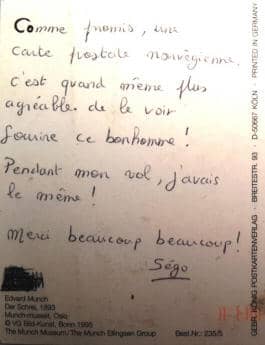 Comme promis, une
carte postale norvégienne.
c'est quand même plus
agréable de le voir
sourire ce bonhomme !
Pendant mon vol, j'avais
le même !
Merci beaucoup beaucoup !
Ségo
Edvard Munch
Der Schrei, 1893
Munch-museet, Oslo
© VG Bild-Kunst, Bonn 1995
The Munch Museum/The Munch Ellingsen Group
Best.Nr.: 235/5
GEBR. KÖNIG POSTKARTENVERLAG · BREITESTR. 93 · D-50667 KÖLN · PRINTED IN GERMANY